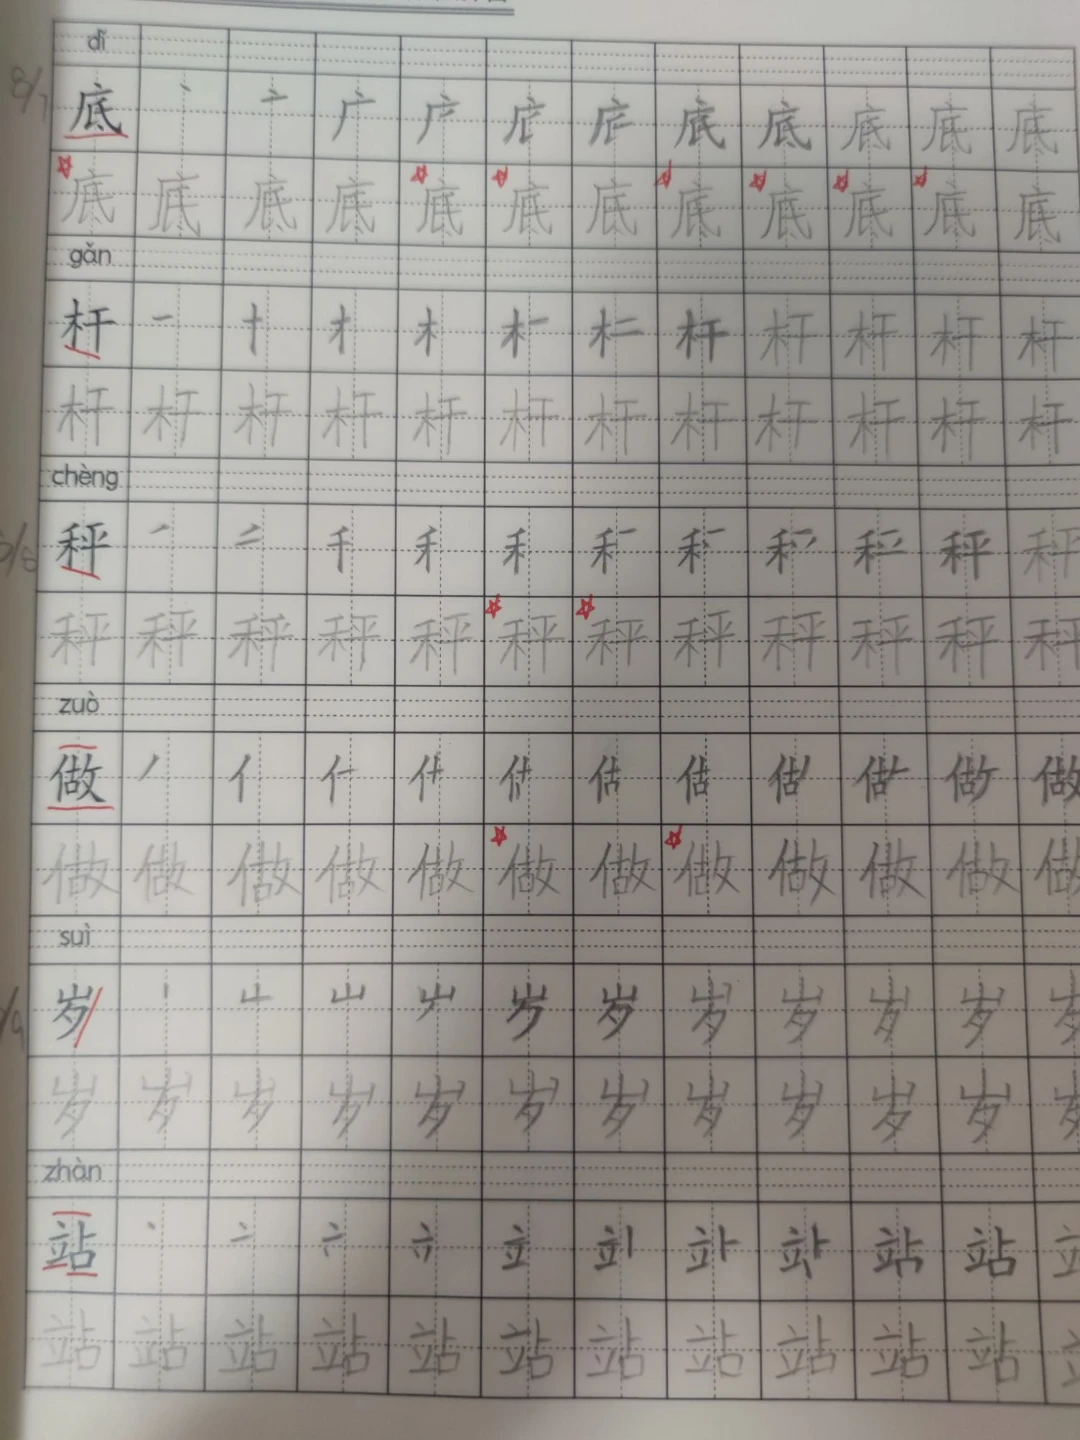 dǐ
底 丶 亠 广 底 底 底 底 底
底 底 底 底 底 底 底 底 底 底 底 底
gǎn
杆 一 十 才 木 杆 杆 杆 杆 杆
杆 杆 杆 杆 杆 杆 杆 杆 杆 杆 杆 杆
chèng
秤 禾 秤 秤
秤 秤 秤 秤 秤 秤 秤 秤 秤 秤 秤 秤
zuò
做 丿 亻 什 估 估 做 做
做 做 做 做 做 做 做 做 做 做 做 做
suì
岁 丨 山 岁 岁 岁 岁 岁 岁 岁
岁 岁 岁 岁 岁 岁 岁 岁 岁 岁 岁 岁
zhàn
站 丶 亠 立 站 站
站 站 站 站 站 站 站 站 站 站 站